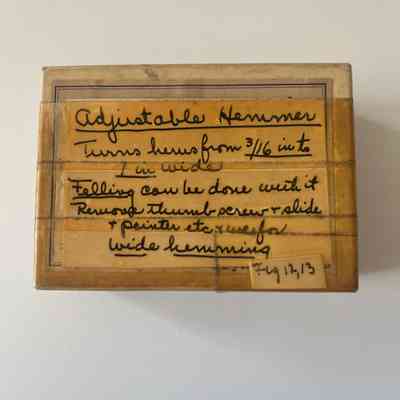 Adjustable Hemmer
Turns hems from 3/16 in to
1 in wide
Felling can be done with it
Remove thumb screw + slide
+ pointer etc + use for
wide hemming
Fig 12, 13